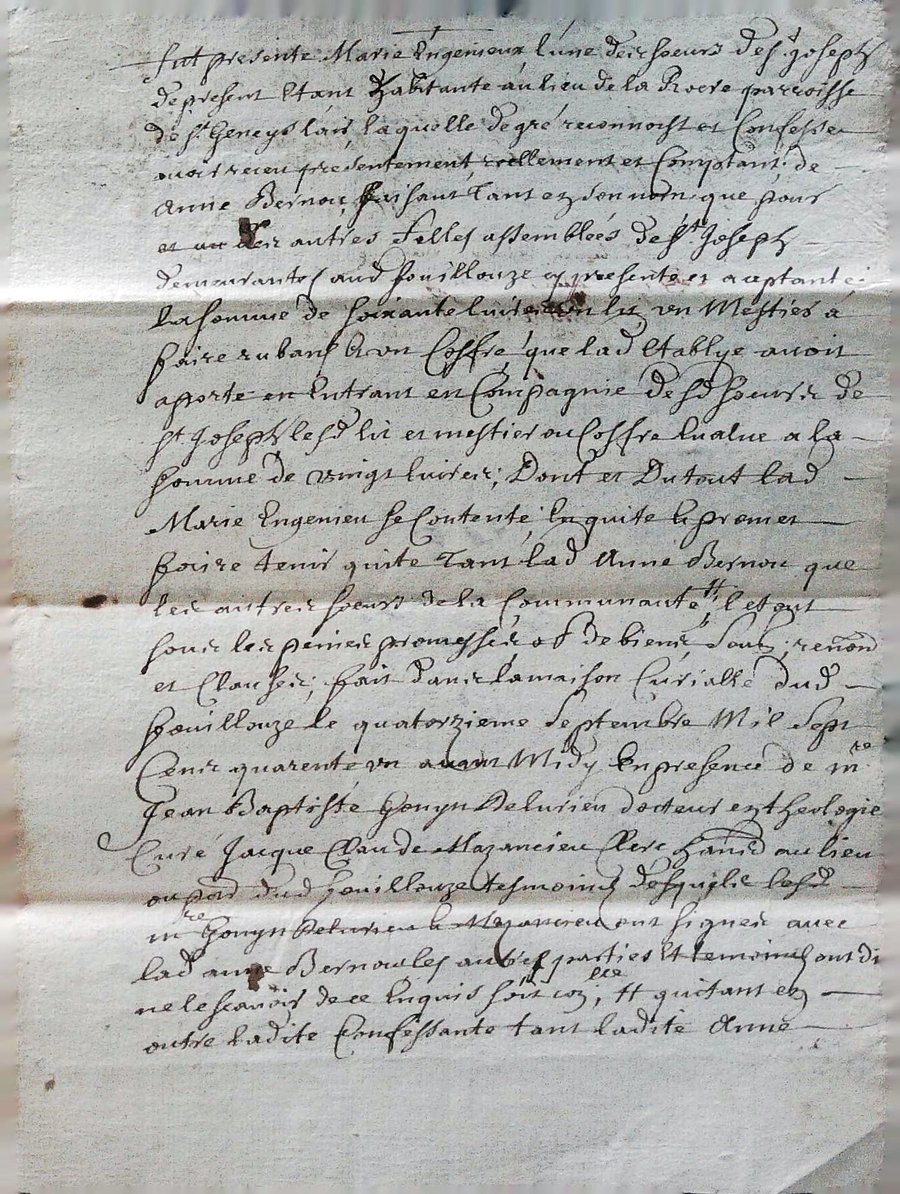 fut presente Marie Engenieux l'une des soeurs de st joseph
de present Etant habitante au lieu de la Roere parroisse
de st Geneys lair laquelle de gré reconnoist et Confesse
avoir receu presentement, reellement et Comptant, de
Anne Bernou, faisant tant en son nom que pour
et au des autres filles assemblées de st Joseph
demeurantes aud fouillouze cy presente et aceptante
La somme de soixante livres un lit, un Mestier à
faire rubans & un Coffre, que lad Etablye avoit
aporte en Entrant en Compagnie desd soeurs de
st Joseph lesd lit et mestier ou Coffre Evalue a la
somme de vingt livres; Dont et Dutout lad
Marie Engenieu se Contente En quite & promet
faire tenir quite Tant lad Anne Bernou que
les autres soeurs de la Communauté, # le tout
sous les peines promesses ob de biens, soub, renond
et Clauses; fait dans la maison Curialle dud
fouillouze le quatorzieme Septembre Mil Sept
Cens quarente un avant Midy En presence de mre
Jean Baptiste Gonyn Delurieu docteur en theologie
Curé Jacque Claude Mazancieu Clerc habitd au lieu
dud fouillouze tesmoins desquels lesd
mre Gonyn Delurieu & Mazancieu ont signes avec
lad anne Bernou les autres parties Et temoins ont di
ne le scavoir de ce Enquis soit con, # quitant en
outre Ladite Confessante tant Ladite Anne